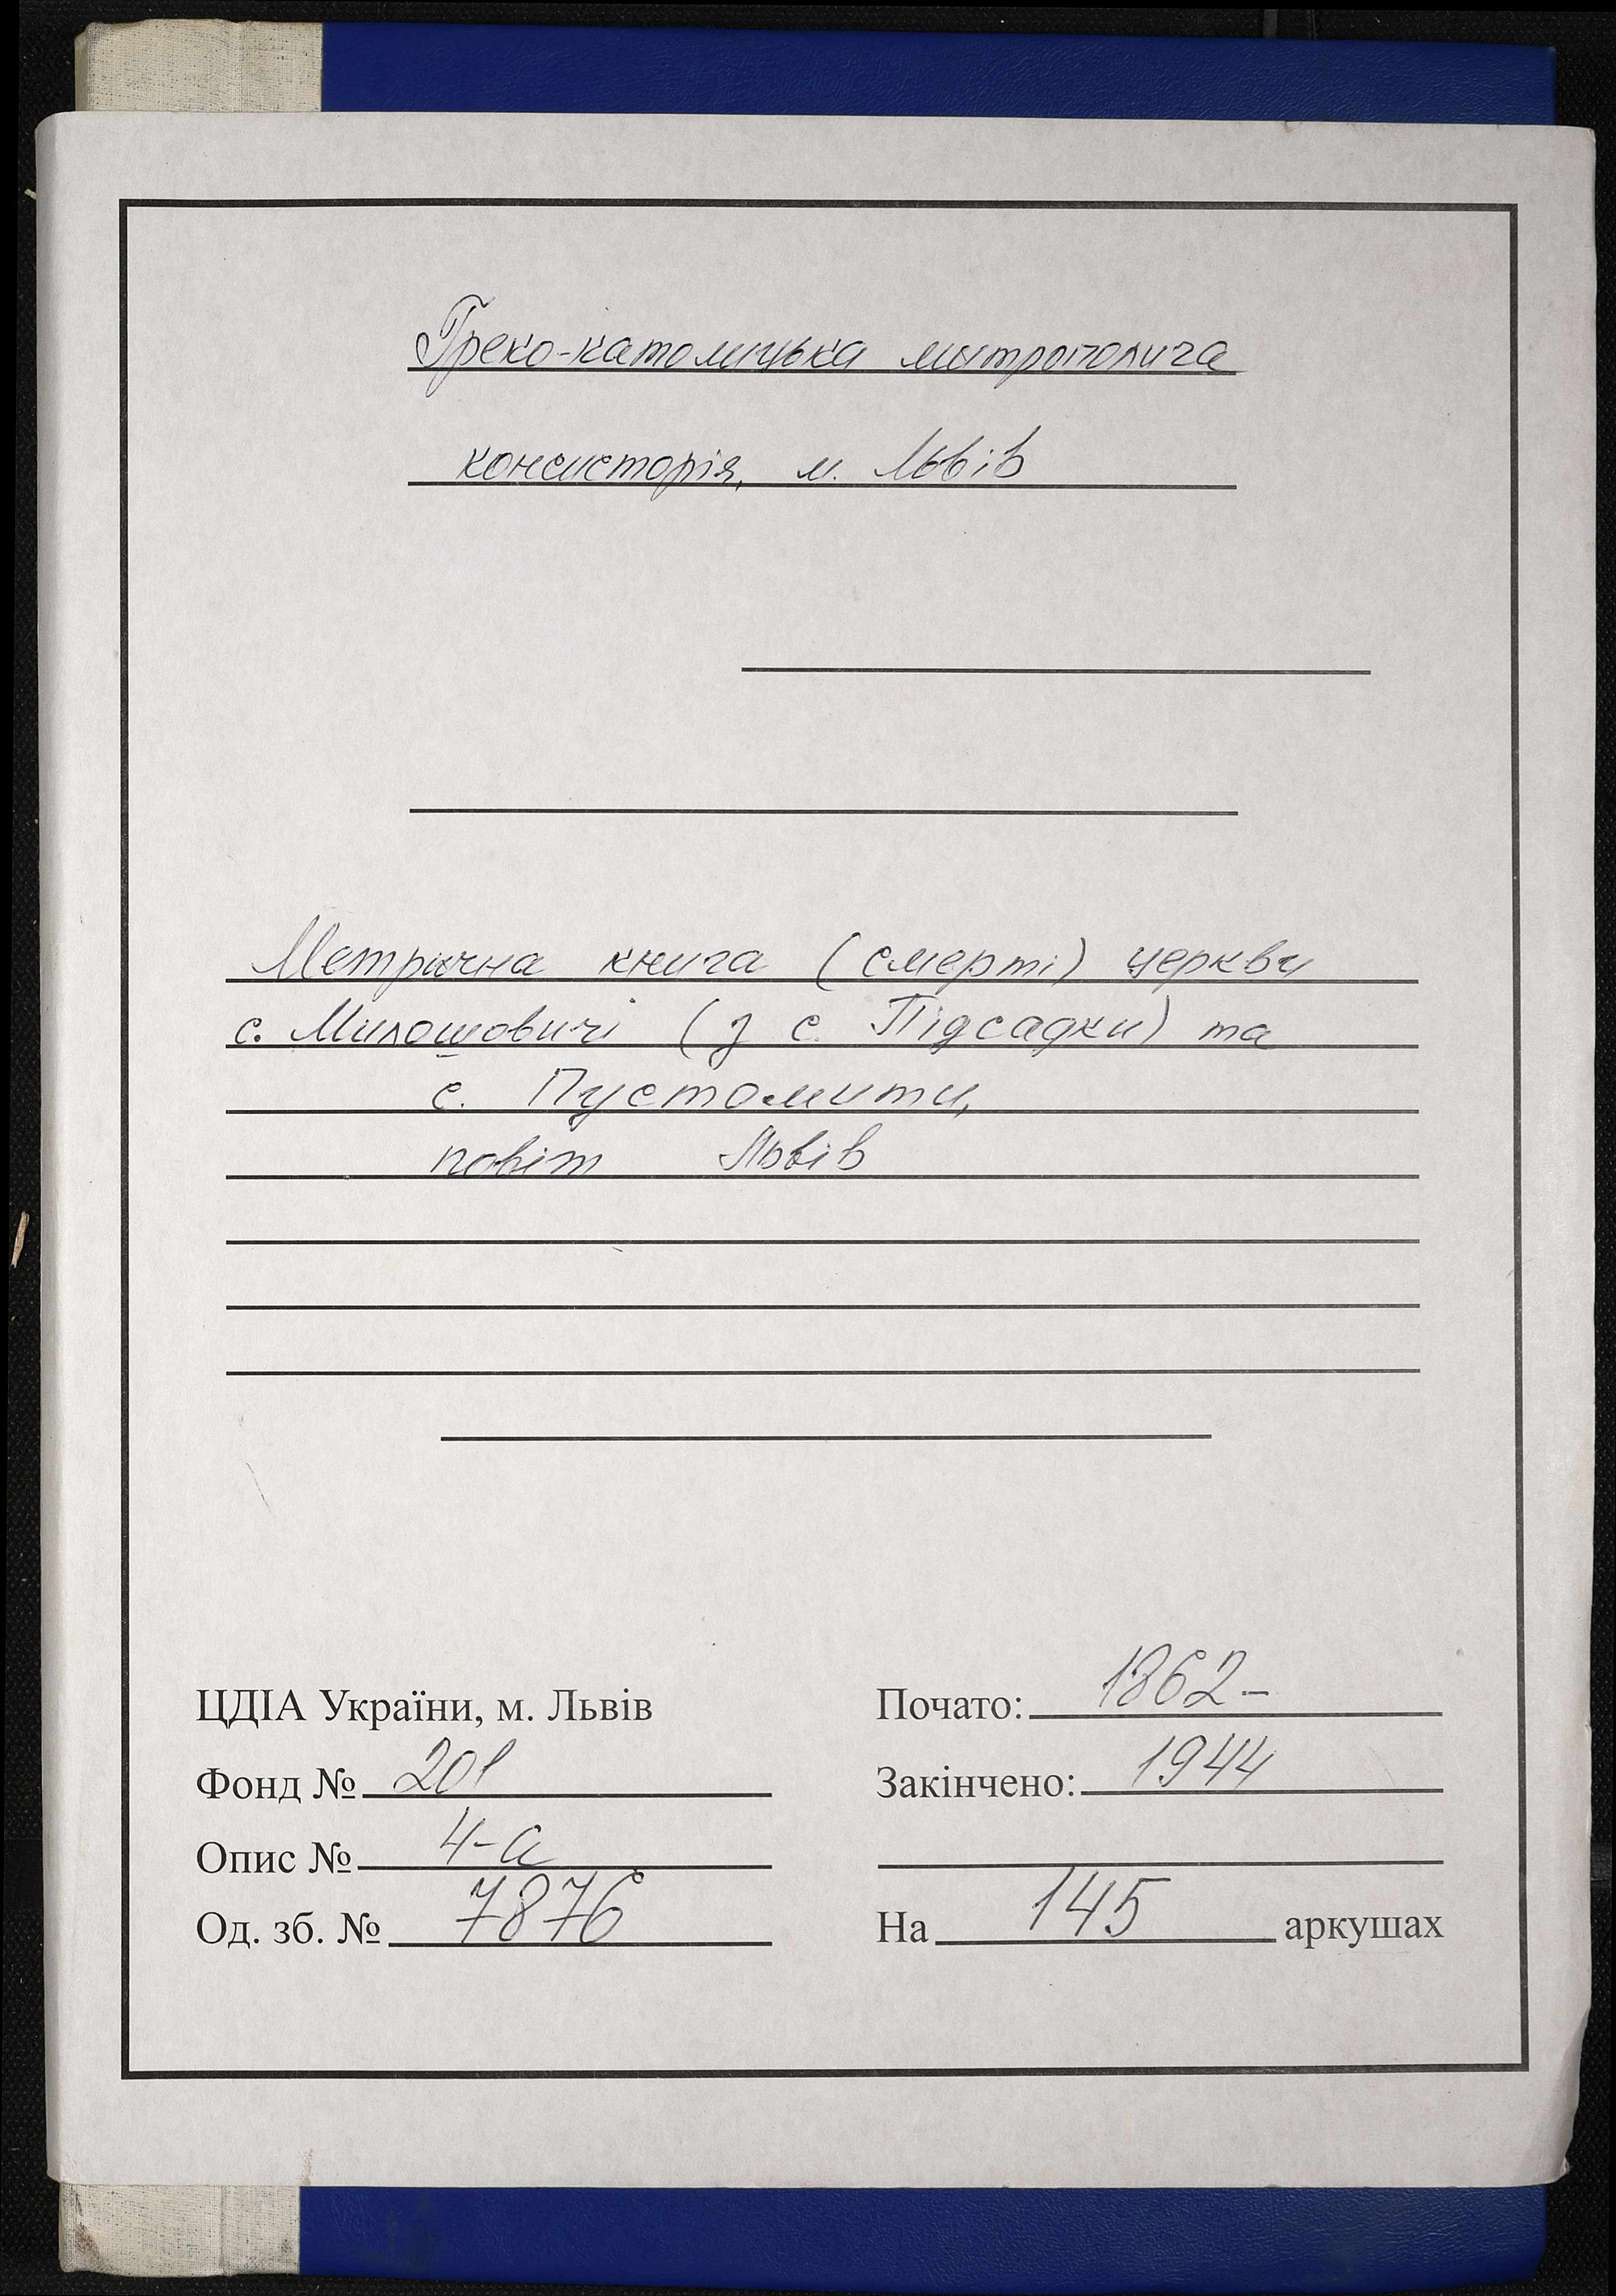 Греко-католицька митрополича
консисторія, м. Львів
Метрична книга (смерті) церкви
с. Милошовичі (з с. Підсадки) та
с. Пустомити,
повіт Львів
ЦДІА України, м. Львів
Фонд № 201
Опис № 4-а
Од. зб. № 7876
Почато: 1862-
Закінчено: 1944
На 145 аркушах